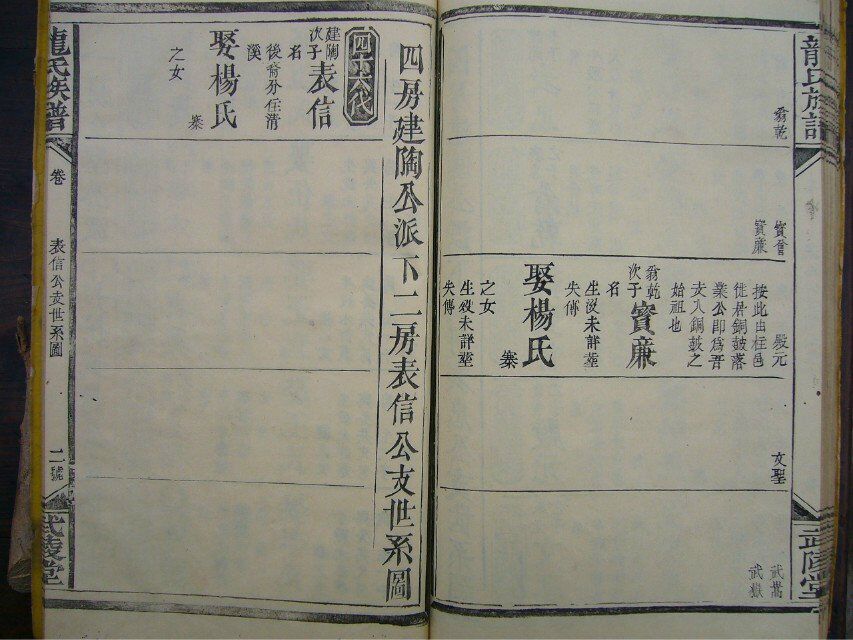 龍氏族譜
武陵堂
翁乾
實詹
實廉
殿元
文聖
武嵩
武嶽
按此由柱邑
徙居銅鼓落
業公即為吾
支入銅鼓之
始祖也
翁乾
次子
名
實廉
生歿未詳塋
失傳
娶楊氏
寨
之女
生歿未詳塋
失傳
四房建陶公派下二房表信公支世系圖
四十六代
建陶
次子
名
表信
後裔分住清
溪
娶楊氏
寨
之女
龍氏族譜
卷
表信公支世系圖
二號
武陵堂